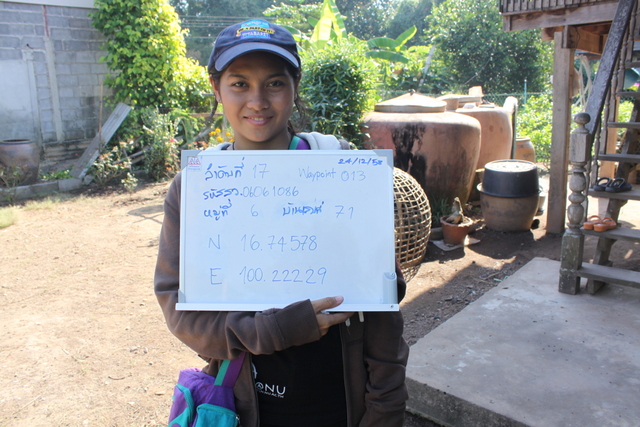 ลำดับที่ 17 Waypoint 013 24/12/58
รหัสรว. 06061086
หมู่ที่ 6 บ้านเลขที่ 71
N 16.74578
E 100.22229
NU